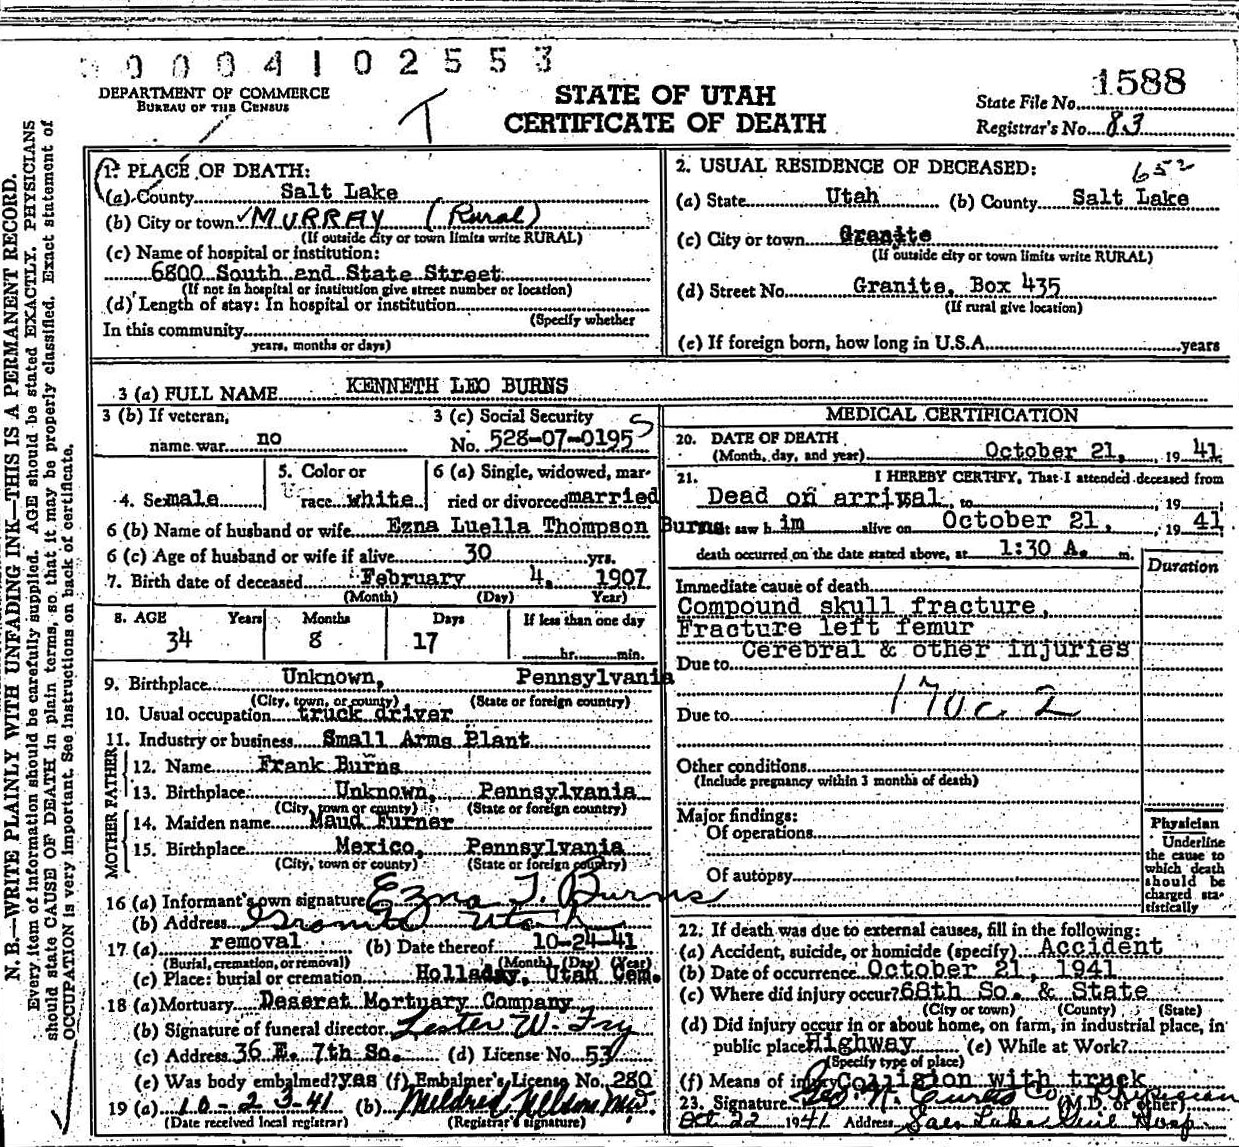 0 0 0 4 1 0 2 5 5 3
DEPARTMENT OF COMMERCE
BUREAU OF THE CENSUS
T
STATE OF UTAH
CERTIFICATE OF DEATH
State File No. 1588
Registrar's No. 83
N. B.—WRITE PLAINLY WITH UNFADING INK—THIS IS A PERMANENT RECORD.
Every item of information should be carefully supplied. AGE should be stated EXACTLY. PHYSICIANS
should state CAUSE OF DEATH in plain terms, so that it may be properly classified. Exact statement of
OCCUPATION is very important. See instructions on back of certificate.
1. PLACE OF DEATH:
(a) County Salt Lake
(b) City or town MURRAY (Rural)
(If outside city or town limits write RURAL)
(c) Name of hospital or institution:
6800 South and State Street
(If not in hospital or institution give street number or location)
(d) Length of stay: In hospital or institution
(Specify whether
In this community
years, months or days)
2. USUAL RESIDENCE OF DECEASED: 652
(a) State Utah (b) County Salt Lake
(c) City or town Granite
(If outside city or town limits write RURAL)
(d) Street No. Granite, Box 435
(If rural give location)
(e) If foreign born, how long in U.S.A. years
3 (a) FULL NAME KENNETH LEO BURNS
3 (b) If veteran,
name war no
3 (c) Social Security
No. 528-07-0195 S
4. Sex male
5. Color or
race white
6 (a) Single, widowed, mar-
ried or divorced married
6 (b) Name of husband or wife Ezna Luella Thompson Burns
6 (c) Age of husband or wife if alive 30 yrs.
7. Birth date of deceased February 4, 1907
(Month) (Day) Year)
8. AGE Years Months Days If less than one day
34 8 17 hr. min.
9. Birthplace Unknown, Pennsylvania
(City, town, or county) (State or foreign country)
10. Usual occupation truck driver
11. Industry or business Small Arms Plant
FATHER
12. Name Frank Burns
13. Birthplace Unknown, Pennsylvania
(City, town or county) (State or foreign country)
MOTHER
14. Maiden name Maud Furner
15. Birthplace Mexico, Pennsylvania
(City, town or county) (State or foreign country)
16 (a) Informant's own signature Ezna T. Burns
(b) Address Granite Utah
17 (a) removal (b) Date thereof 10-24-41
(Burial, cremation, or removal) (Month) (Day) (Year)
(c) Place: burial or cremation Holladay, Utah Cem.
18 (a) Mortuary Deseret Mortuary Company
(b) Signature of funeral director Lester W. Fry
(c) Address 36 E. 7th So. (d) License No. 53
(e) Was body embalmed? yes (f) Embalmer's License No. 280
19 (a) 10-23-41 (b) Mildred Nelson
(Date received local registrar) (Registrar's signature)
MEDICAL CERTIFICATION
20. DATE OF DEATH
(Month, day, and year) October 21, 19 41
21. I HEREBY CERTIFY, That I attended deceased from
Dead on arriwal, to , 19 ;
last saw h im alive on October 21, 19 41
death occurred on the date stated above, at 1:30 A. m.
Duration
Immediate cause of death
Compound skull fracture,
Fracture left femur
Cerebral & other injuries
Due to
170c 2
Due to
Other conditions
(Include pregnancy within 3 months of death)
Major findings:
Of operations
Of autopsy
Physician
Underline
the cause to
which death
should be
charged sta-
tistically
22. If death was due to external causes, fill in the following:
(a) Accident, suicide, or homicide (specify) Accident
(b) Date of occurrence October 21, 1941
(c) Where did injury occur? 68th So. & State
(City or town) (County) (State)
(d) Did injury occur in or about home, on farm, in industrial place, in
public place Highway (e) While at Work?
(Specify type of place)
(f) Means of injury Collision with truck
23. Signature Geo. N. Curtis Co. Physician
(M.D. or other)
Oct 22 1941 Address Salt Lake Genl Hosp